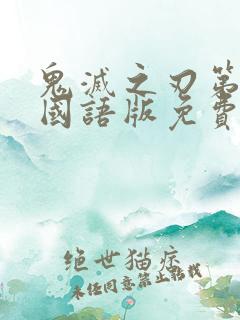 鬼滅之刃第
國語版免費
绝世猫痞
未经同意禁止转载